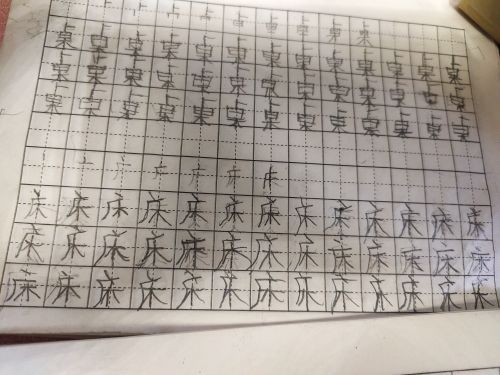 桌
桌桌桌桌桌桌桌桌桌桌桌桌桌
桌桌桌桌桌桌桌桌桌桌桌桌桌
桌桌桌桌桌桌桌桌桌桌桌桌桌
床
床床床床床床床床床床床床
床床床床床床床床床床床床床
床床床床床床床床床床床床床